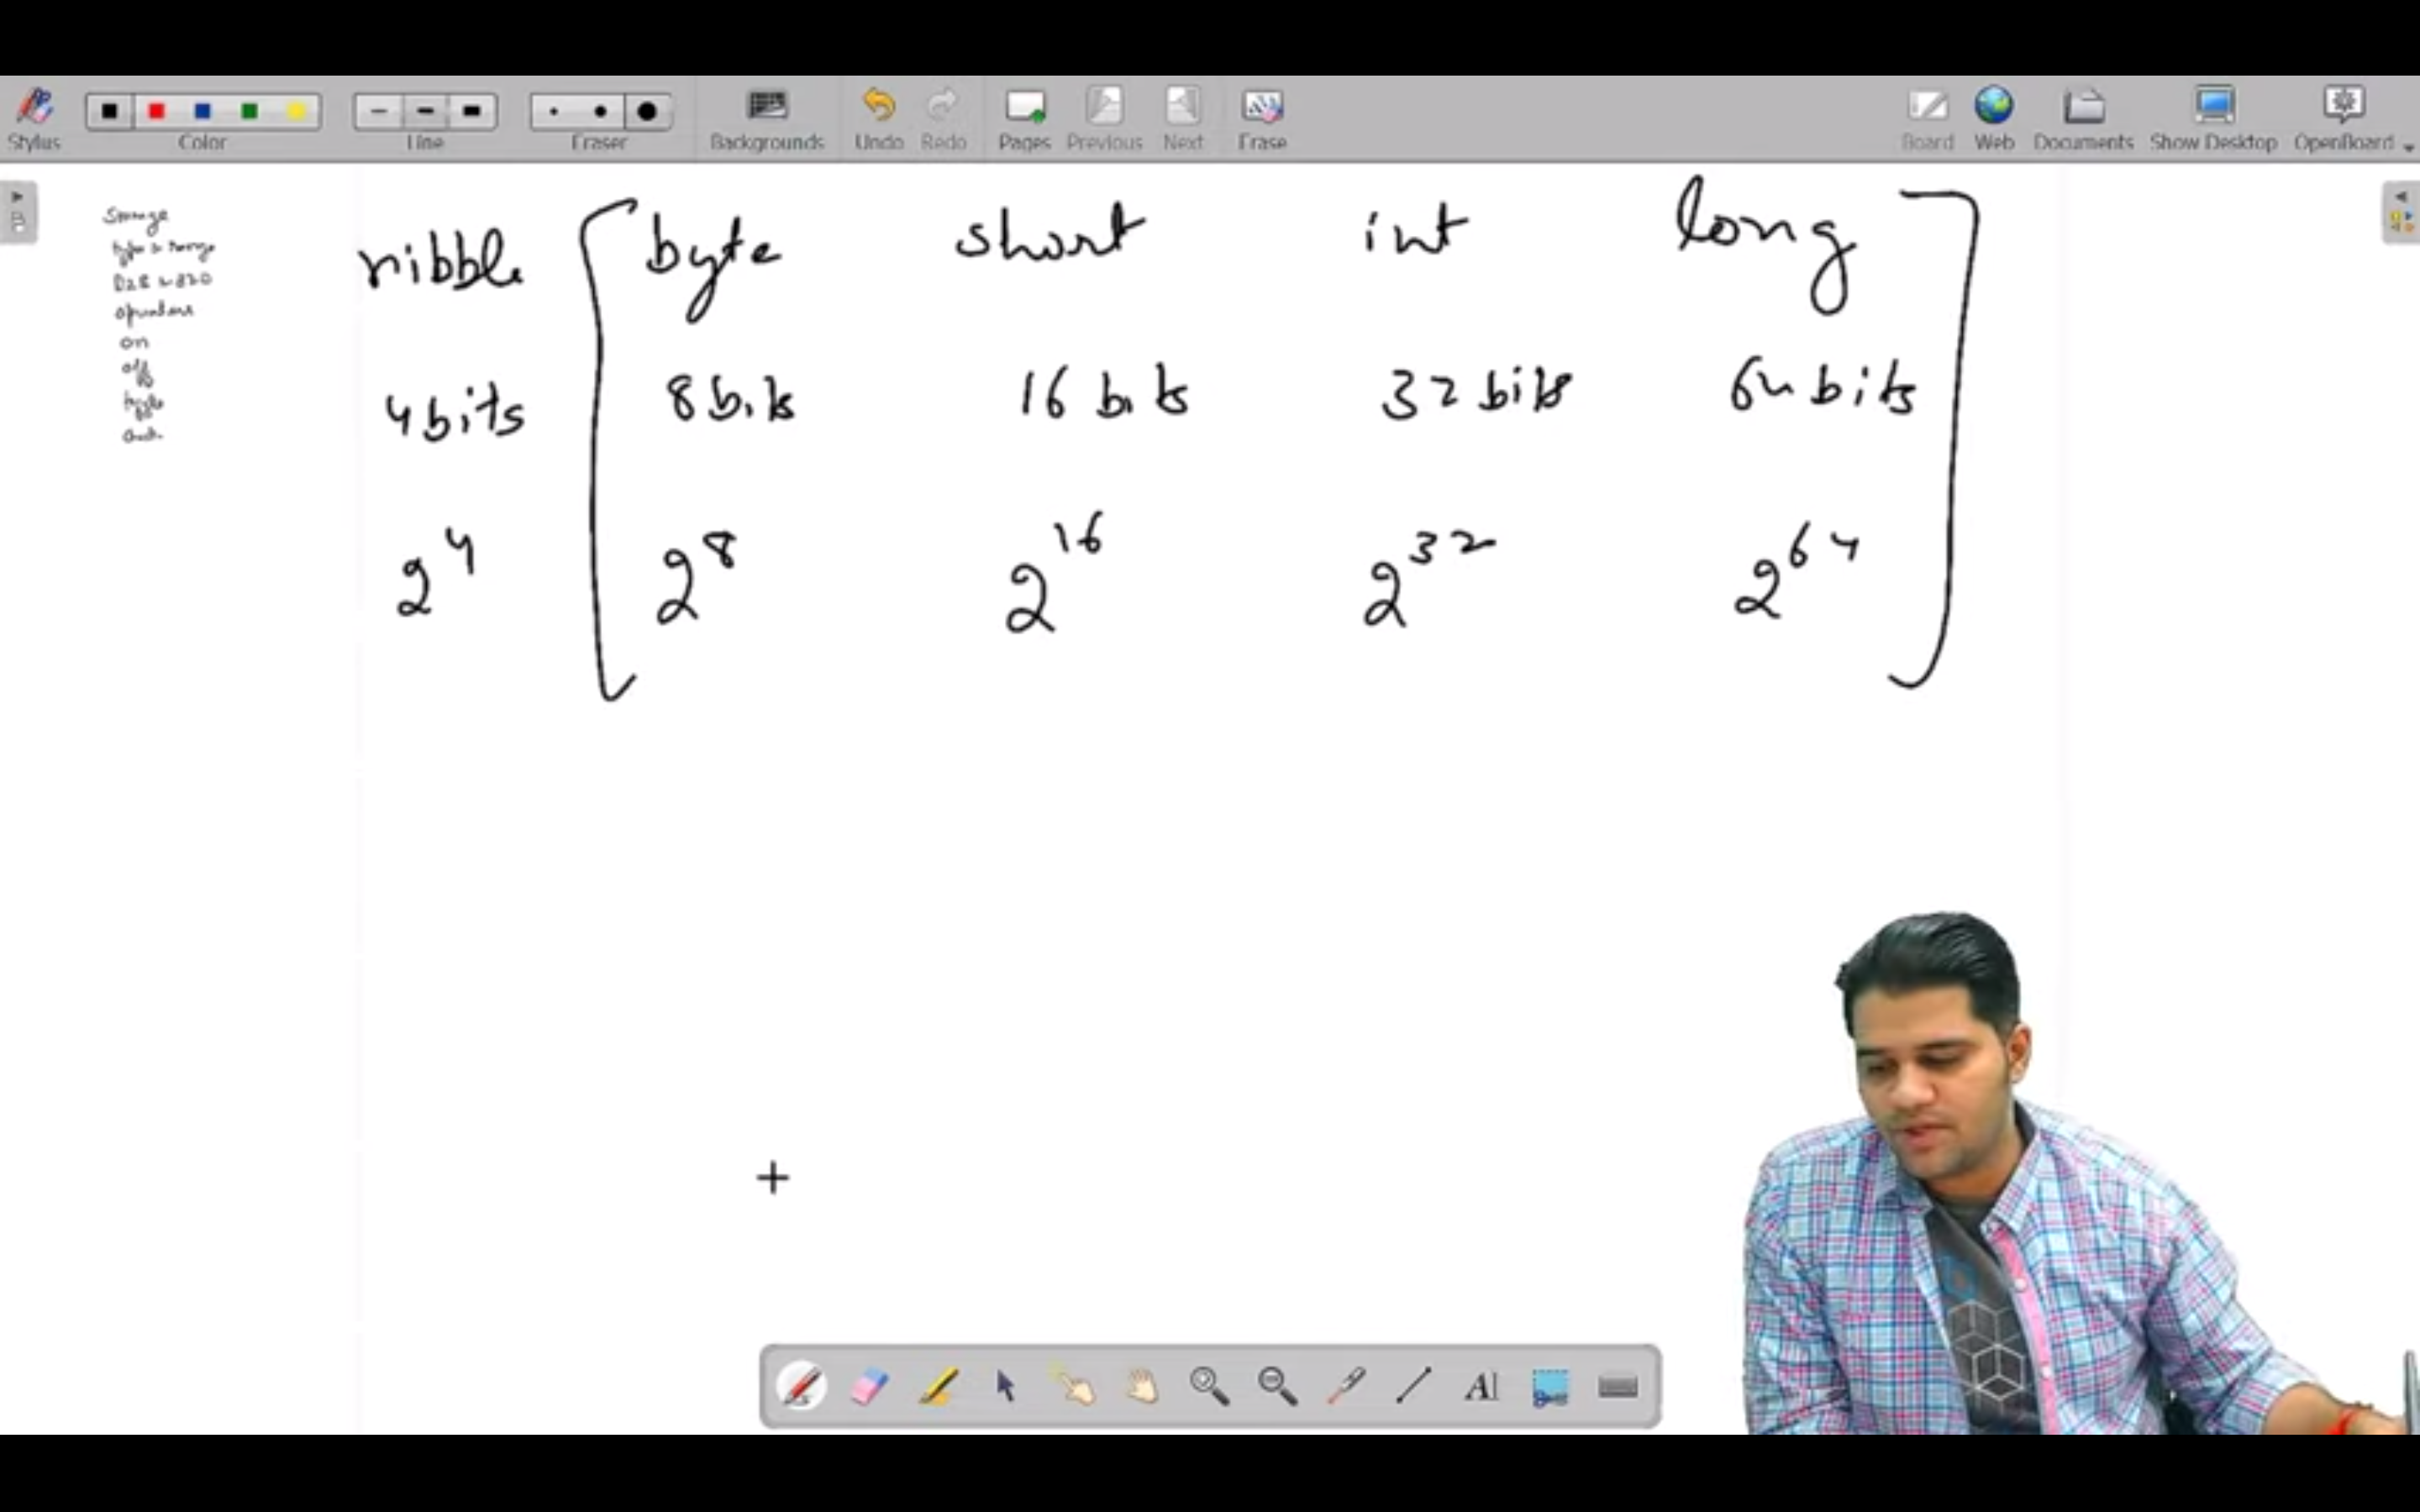 Stylus Color Line Eraser Backgrounds Undo Redo Pages Previous Next Erase Board Web Documents Show Desktop OpenBoard
Storage
on
off
nibble byte short int long
4bits 8bits 16 bits 32 bits 64 bits
2^4 2^8 2^16 2^32 2^64